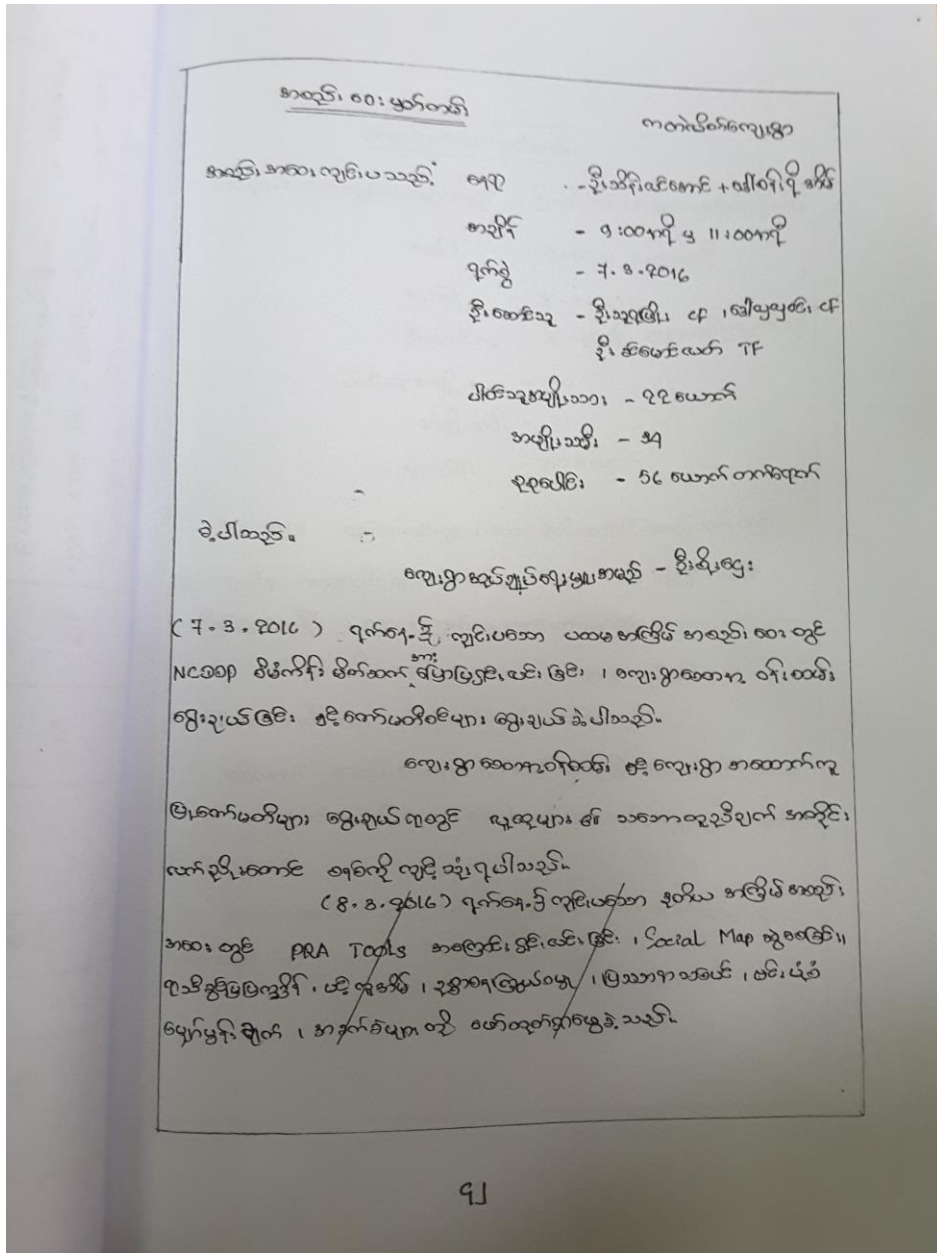 အစည်းအဝေးမှတ်တမ်း
ကျေးရွာ
အစည်းအဝေးကျင်းပသည့် နေရာ - ဦးသိန်းဝင်းအောင် + အိမ်
အချိန် - 9:00နာရီ မှ 11:00နာရီ
ရက်စွဲ - 7.3.2016
ဦးဆောင်သူ - CF ၊ CF
TF
ပါဝင်သူအမျိုးသား - ၂၂ ယောက်
အမျိုးသမီး - ၃၄
စုစုပေါင်း - 56 ယောက် တက်ရောက်
ခဲ့ပါသည်။
ကျေးရွာအုပ်ချုပ်ရေးမှူးအမည် - ဦးစိုးဌေး
(7.3.2016) ရက်နေ့၌ ကျင်းပသော ပထမအကြိမ် အစည်းအဝေးတွင်
NCDDP စီမံကိန်း မိတ်ဆက် အား ပြောပြရှင်းလင်းခြင်း ၊ ကျေးရွာစေတနာ့ ဝန်ထမ်း
ရွေးချယ်ခြင်း နှင့် ကော်မတီဝင်များ ရွေးချယ်ခဲ့ပါသည်။
ကျေးရွာစေတနာ့ဝန်ထမ်း နှင့် ကျေးရွာ အထောက်ကူ
ပြုကော်မတီများ ရွေးချယ်ရာတွင် လူထုများ ၏ သဘောတူညီချက် အတိုင်း
လက်ညှိုးထောင် စနစ်ကို ကျင့်သုံးရပါသည်။
(8.3.2016) ရက်နေ့၌ ကျင်းပသော ဒုတိယ အကြိမ် အစည်း
အဝေးတွင် PRA Tools အကြောင်း ရှင်းလင်းခြင်း ၊ Social Map ဆွဲစေခြင်း၊
ရာသီခွင်ပြပြက္ခဒိန် ၊ ပင့်ကူအိမ် ၊ ၊ ပြဿနာသစ်ပင် ၊
မျှော်မှန်းချက် ၊ အခက်ခဲများ ကို ဖော်ထုတ်ရှာဖွေခဲ့သည်။
၅၂